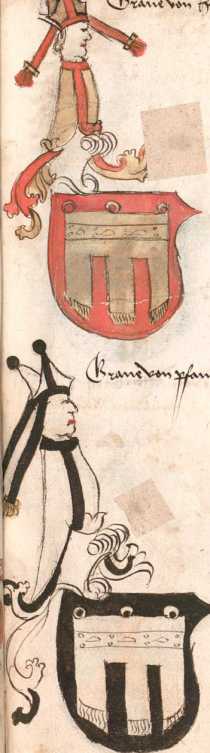 Grave von
Grave von pfan